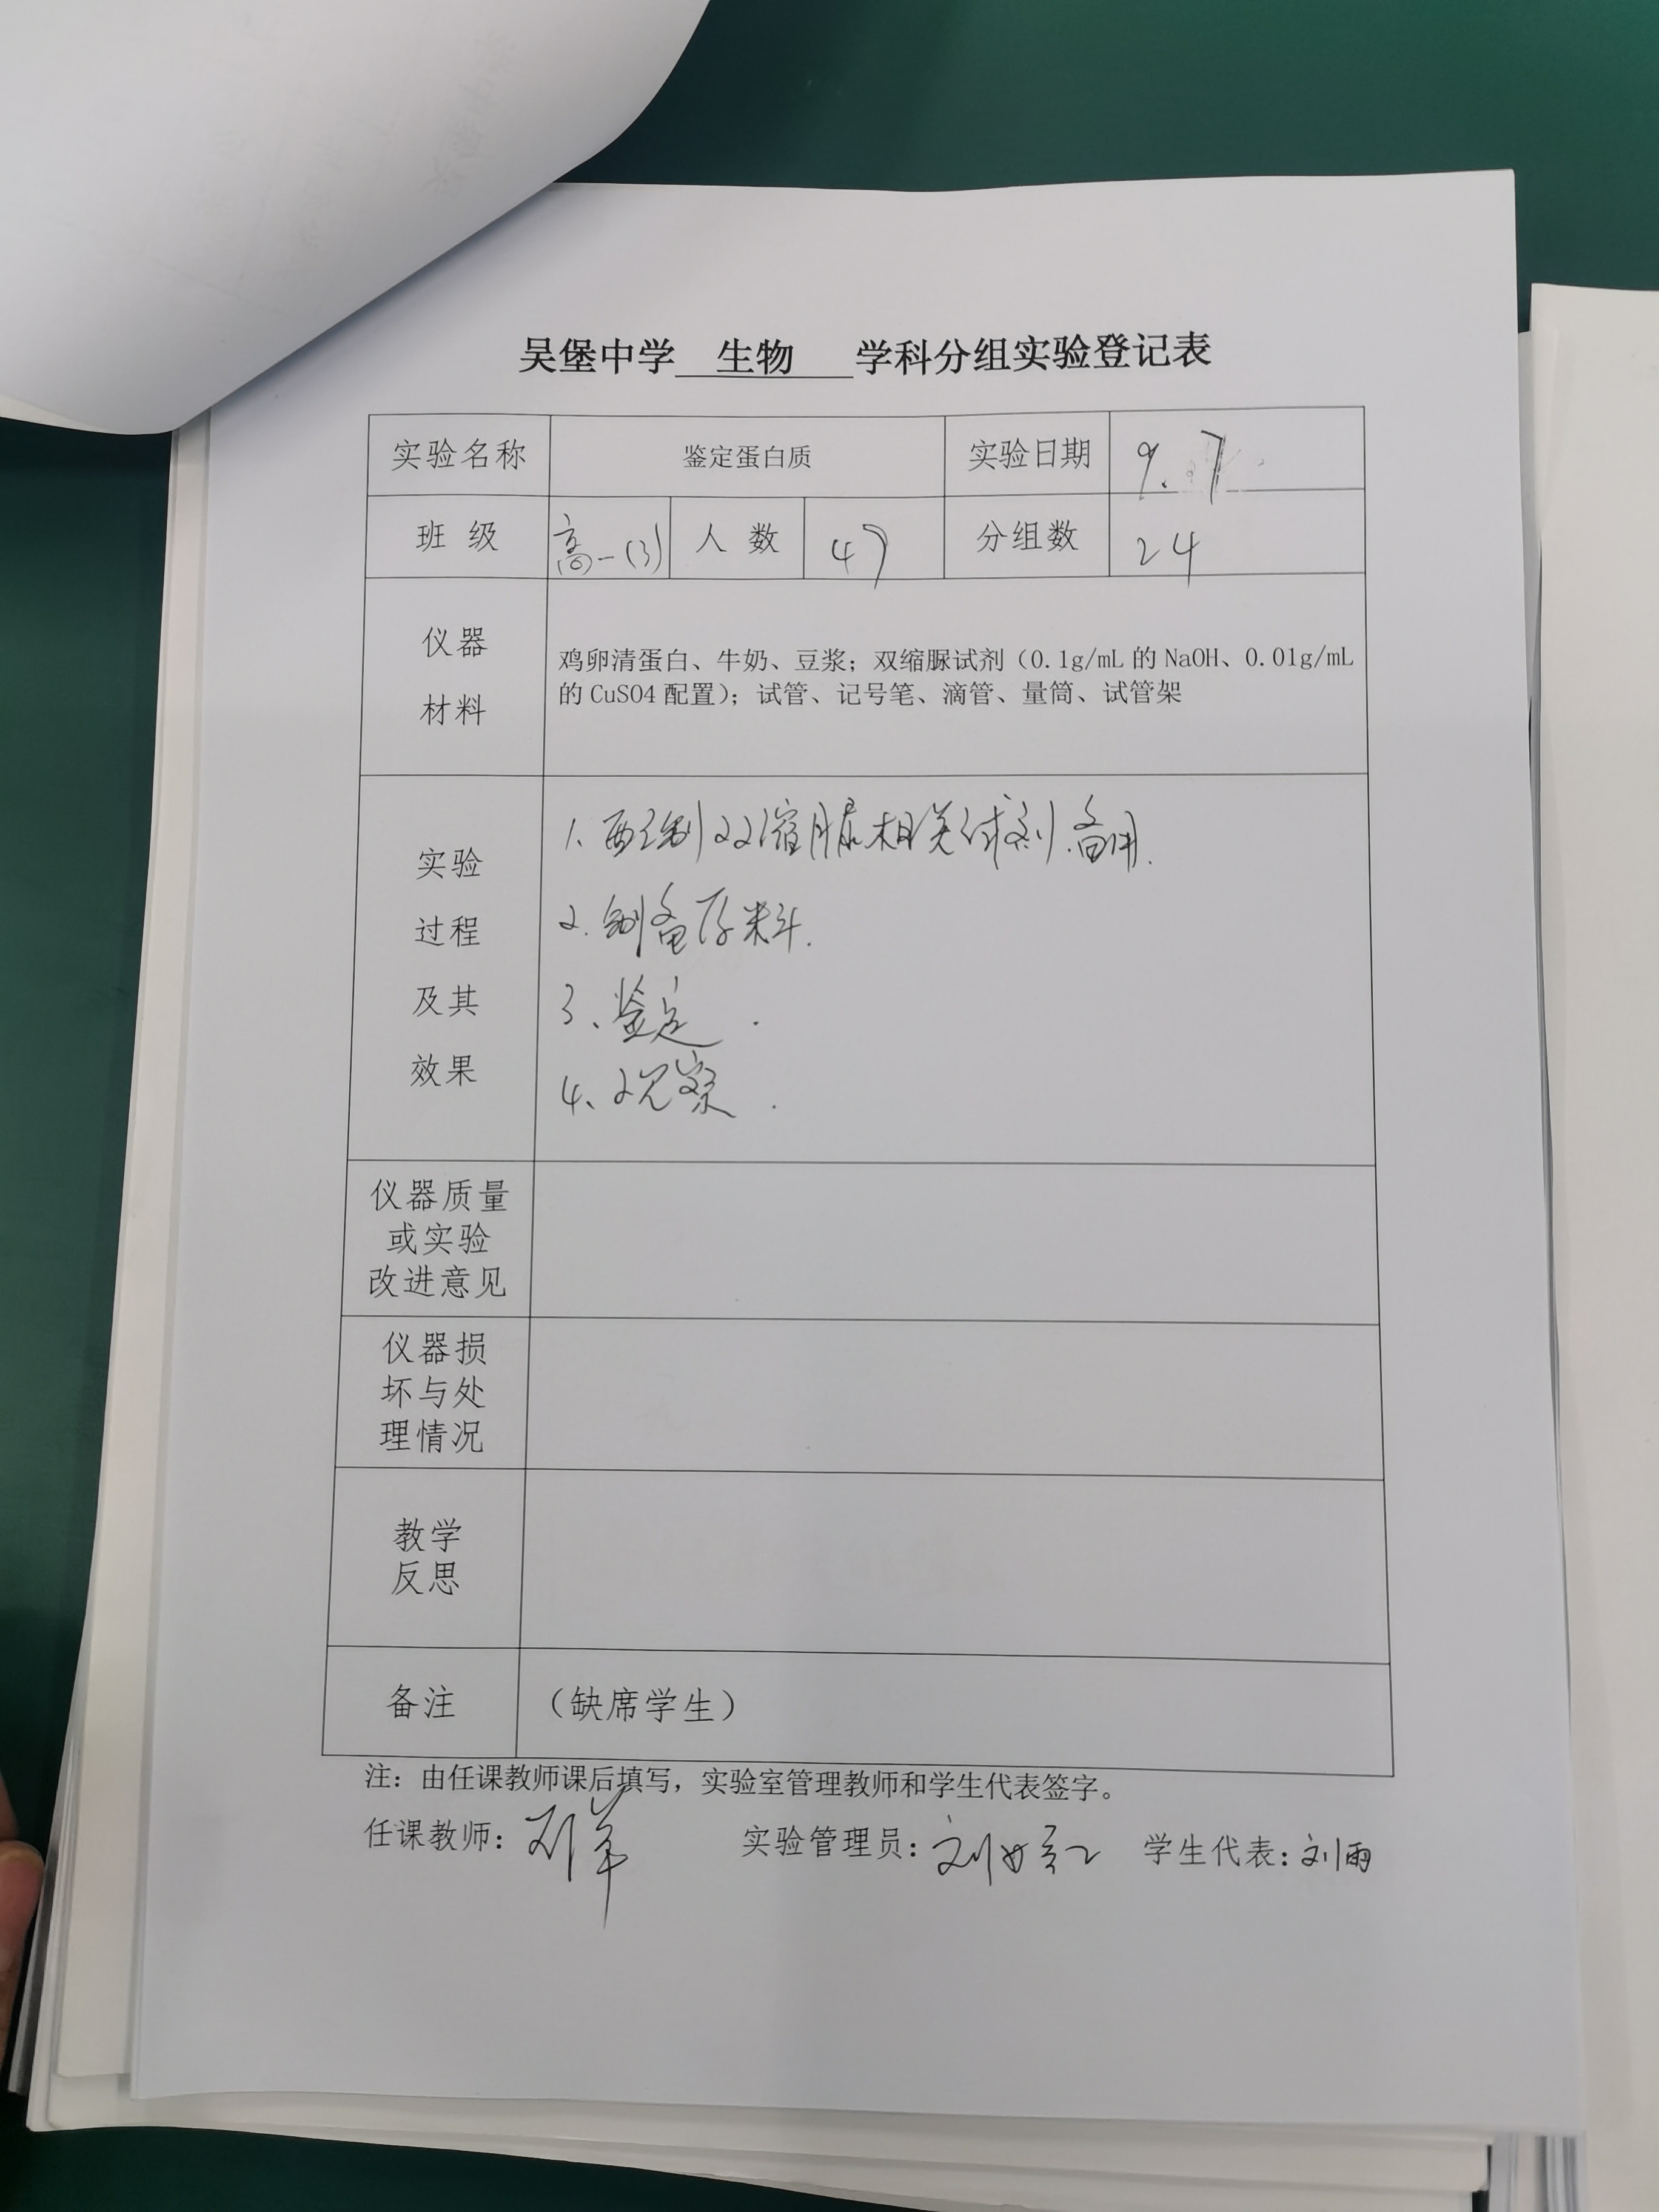 吴堡中学 生物 学科分组实验登记表
实验名称 鉴定蛋白质 实验日期 9.7
班级 高一(3) 人数 47 分组数 24
仪器
材料
鸡卵清蛋白、牛奶、豆浆；双缩脲试剂（0.1g/mL 的 NaOH、0.01g/mL
的 CuSO4 配置）；试管、记号笔、滴管、量筒、试管架
实验
过程
及其
效果
1. 配制双缩脲相关试剂备用.
2. 制备存料.
3、鉴定.
4、观察.
仪器质量
或实验
改进意见
仪器损
坏与处
理情况
教学
反思
备注 （缺席学生）
注：由任课教师课后填写，实验室管理教师和学生代表签字。
任课教师： 实验管理员： 学生代表：刘雨